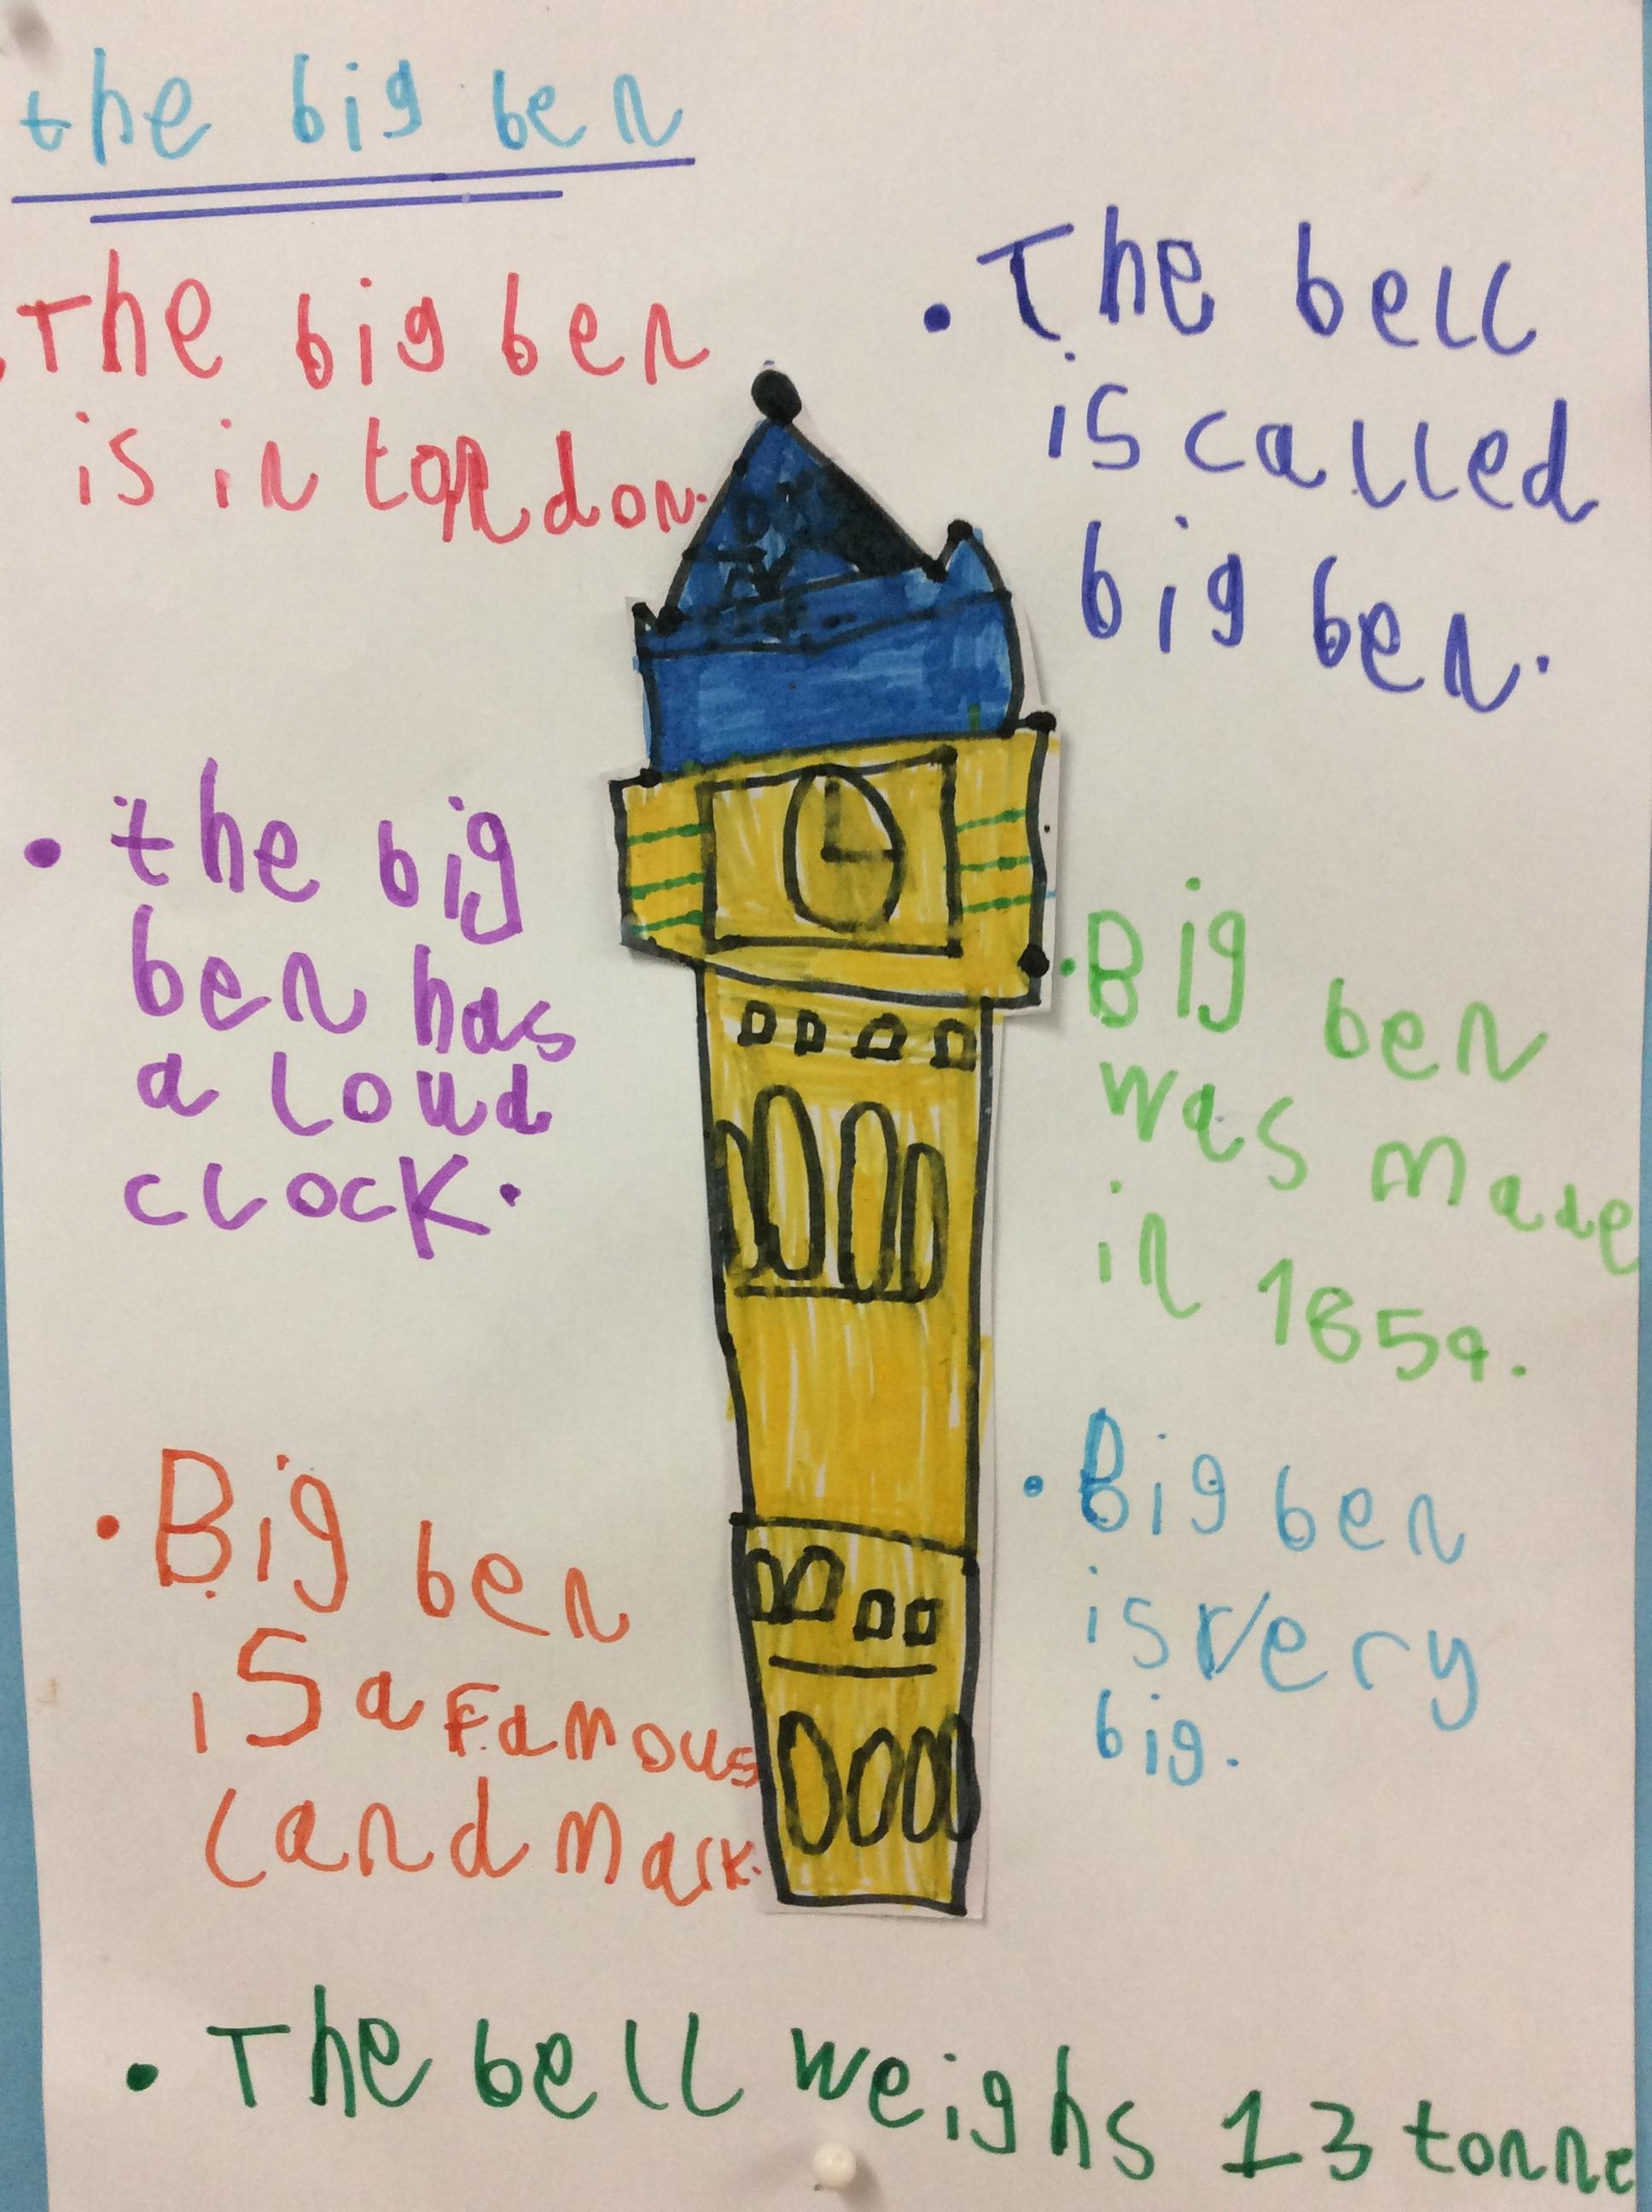 the big ben
The big ben
is in london.
. The bell
is called
big ben.
. the big
ben has
a loud
clock.
. Big ben
was made
in 1859.
. Big ben
is a famous
landmark.
. Big ben
is very
big.
. The bell weighs 13 tonne